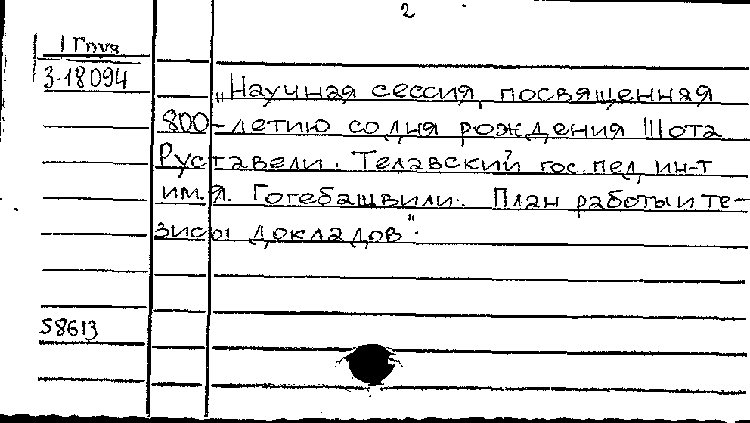 2
1 Груз
3-18094
„Научная сессия, посвященная
800-летию со дня рождения Шота
Руставели. Телавский гос. пед. ин-т
им. Я. Гогебашвили. План работы и те-
зисы докладов".
58613